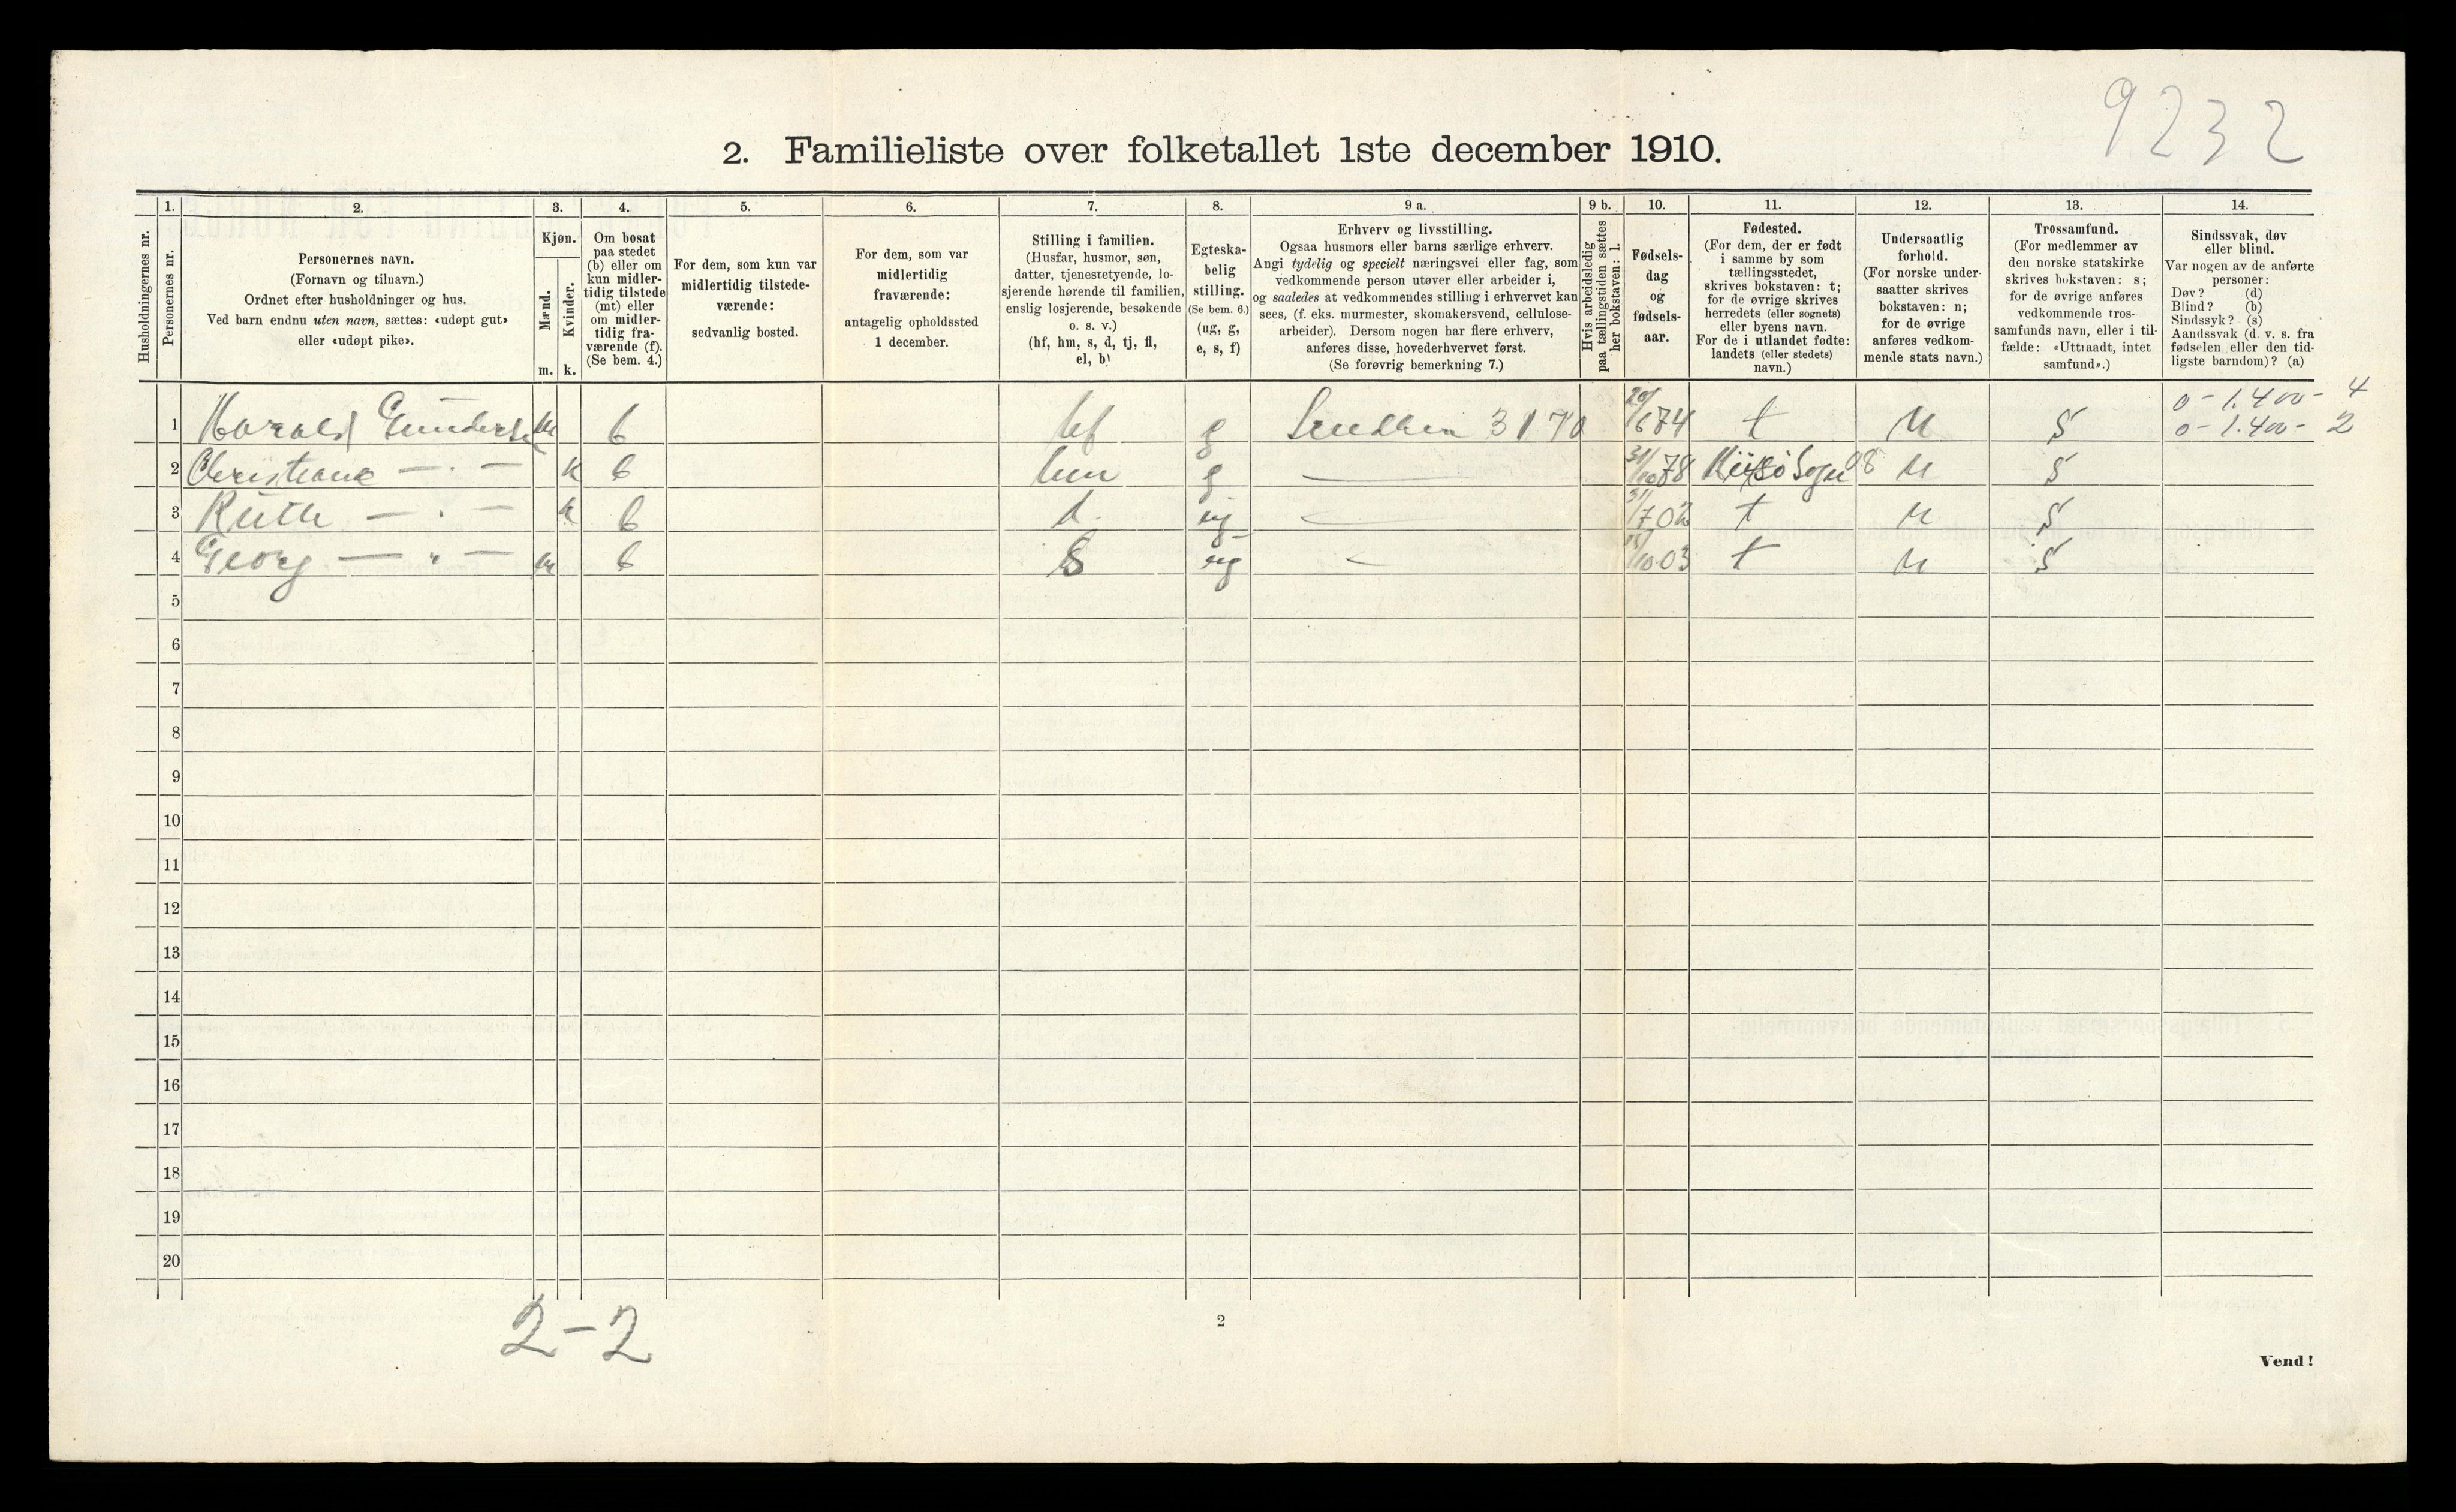 9232
2. Familieliste over folketallet 1ste december 1910.
Husholdningernes nr.
1.
Personernes nr.
2.
Personernes navn.
(Fornavn og tilnavn.)
Ordnet efter husholdninger og hus.
Ved barn endnu uten navn, sættes: «udøpt gut»
eller «udøpt pike».
3.
Kjøn.
Mænd.
m.
Kvinder.
k.
4.
Om bosat
paa stedet
(b) eller om
kun midler-
tidig tilstede
(mt) eller
om midler-
tidig fra-
værende (f).
(Se bem. 4.)
5.
For dem, som kun var
midlertidig tilstede-
værende:
sedvanlig bosted.
6.
For dem, som var
midlertidig
fraværende:
antagelig opholdssted
1 december.
7.
Stilling i familien.
(Husfar, husmor, søn,
datter, tjenestetyende, lo-
sjerende hørende til familien,
enslig losjerende, besøkende
o. s. v.)
(hf, hm, s, d, tj, fl,
el, b)
8.
Egteska-
belig
stilling.
(Se bem. 6.)
(ug, g,
e, s, f)
9 a.
Erhverv og livsstilling.
Ogsaa husmors eller barns særlige erhverv.
Angi tydelig og specielt næringsvei eller fag, som
vedkommende person utøver eller arbeider i,
og saaledes at vedkommendes stilling i erhvervet kan
sees, (f. eks. murmester, skomakersvend, cellulose-
arbeider). Dersom nogen har flere erhverv,
anføres disse, hovederhvervet først.
(Se forøvrig bemerkning 7.)
9 b.
Hvis arbeidsledig
paa tællingstiden sættes
her bokstaven: l.
10.
Fødsels-
dag
og
fødsels-
aar.
11.
Fødested.
(For dem, der er født
i samme by som
tællingsstedet,
skrives bokstaven: t;
for de øvrige skrives
herredets (eller sognets)
eller byens navn.
For de i utlandet fødte:
landets (eller stedets)
navn.)
12.
Undersaatlig
forhold.
(For norske under-
saatter skrives
bokstaven: n;
for de øvrige
anføres vedkom-
mende stats navn.)
13.
Trossamfund.
(For medlemmer av
den norske statskirke
skrives bokstaven: s;
for de øvrige anføres
vedkommende tros-
samfunds navn, eller i til-
fælde: «Uttraadt, intet
samfund».)
14.
Sindssvak, døv
eller blind.
Var nogen av de anførte
personer:
Døv? (d)
Blind? (b)
Sindssyk? (s)
Aandssvak (d. v. s. fra
fødselen eller den tid-
ligste barndom)? (a)
0 - 1.400 - 4
1 Harald Gunderse m b hf g 3170 /6 74 t n s 0 - 1.400 - 2
2 Christiane — " — k b hm g — 31/10 78 08 n s
3 Ruth — " — k b d. ug — 31/7 02 t n s
4 Georg — " — m b s ug — 15/10 03 t n s
5
6
7
8
9
10
11
12
13
14
15
16
17
18
19
20
2-2
2
Vend!